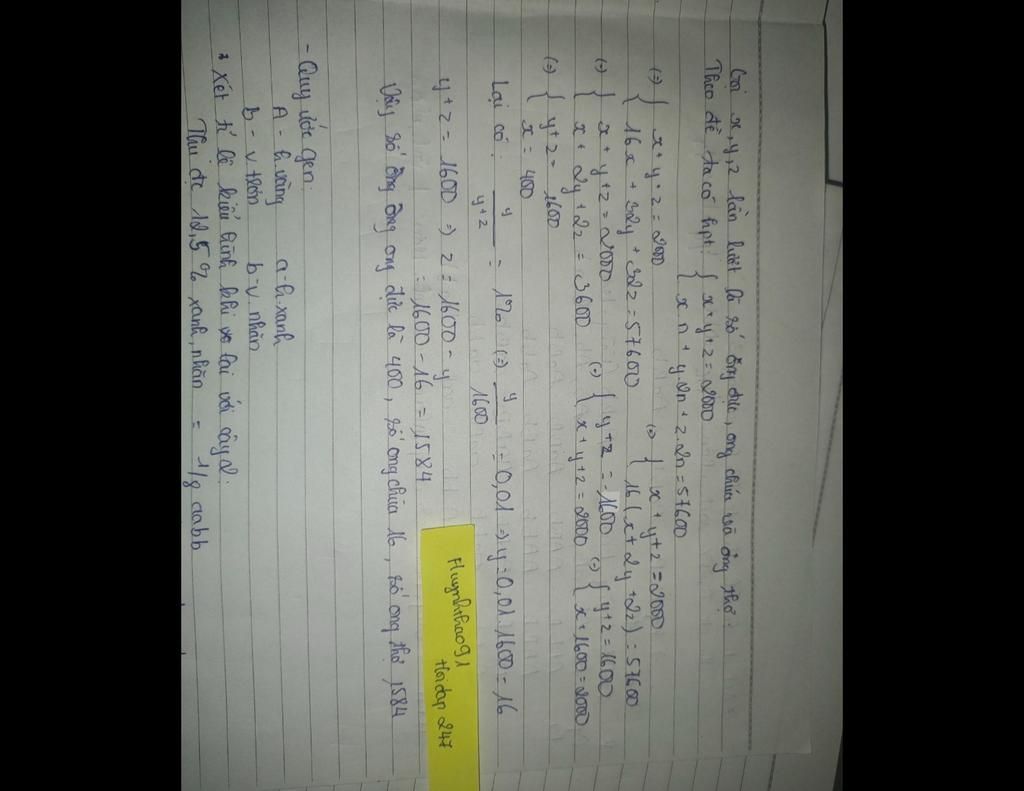 Gọi x, y, z lần lượt là số ong đực, ong chúa và ong thợ.
Theo đề ta có hpt: { x + y + z = 2000
x n + y.2n + z.2n = 57600
(=) { x + y + z = 2000
16x + 32y + 32z = 57600
(=) { x + y + z = 2000
16 (x + 2y + 2z) = 57600
(=) { x + y + z = 2000
x + 2y + 2z = 3600
(=) { y + z = 1600
x + y + z = 2000
(=) { y + z = 1600
x + 1600 = 2000
(=) { y + z = 1600
x = 400
Lại có: y / y+z = 1% (=) y / 1600 = 0,01 => y = 0,01.1600 = 16
y + z = 1600 => z = 1600 - y
= 1600 - 16 = 1584
Vậy số ong đực là 400, số ong chúa 16, số ong thợ 1584
Huynhthao91
Hoidap 247
- Quy ước gen:
A - h.vàng a - h.xanh
B - v trơn b - v nhăn
* Xét tỉ lệ kiểu hình khi lai với cây 2:
Thu đc 12,5% xanh, nhăn = 1/8 aabb